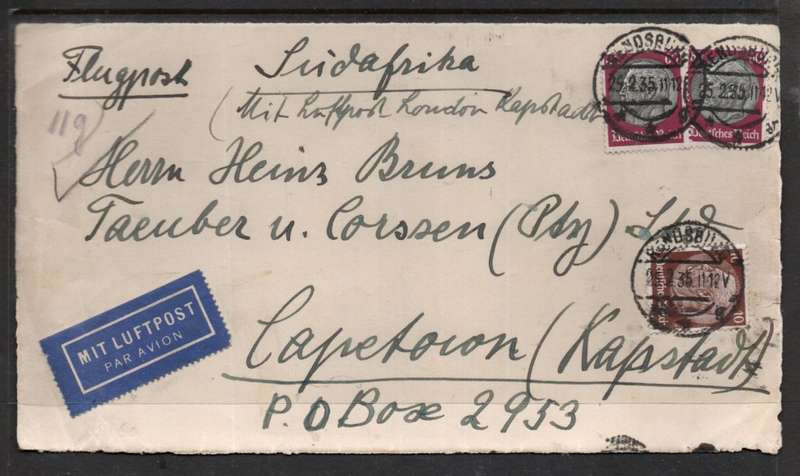 Flugpost Südafrika
(Mit Luftpost London Kapstadt)
119
Herrn Heinz Bruns
Taeuber u. Corssen (Pty) Ltd
Capetown (Kapstadt)
P.O Box 2953
MIT LUFTPOST
PAR AVION
RENDSBURG
25.2.35.11-12V
RENDSBURG
25.2.35.11-12V
Deutsches Reich
RENDSBURG
25.2.35.11-12V
10